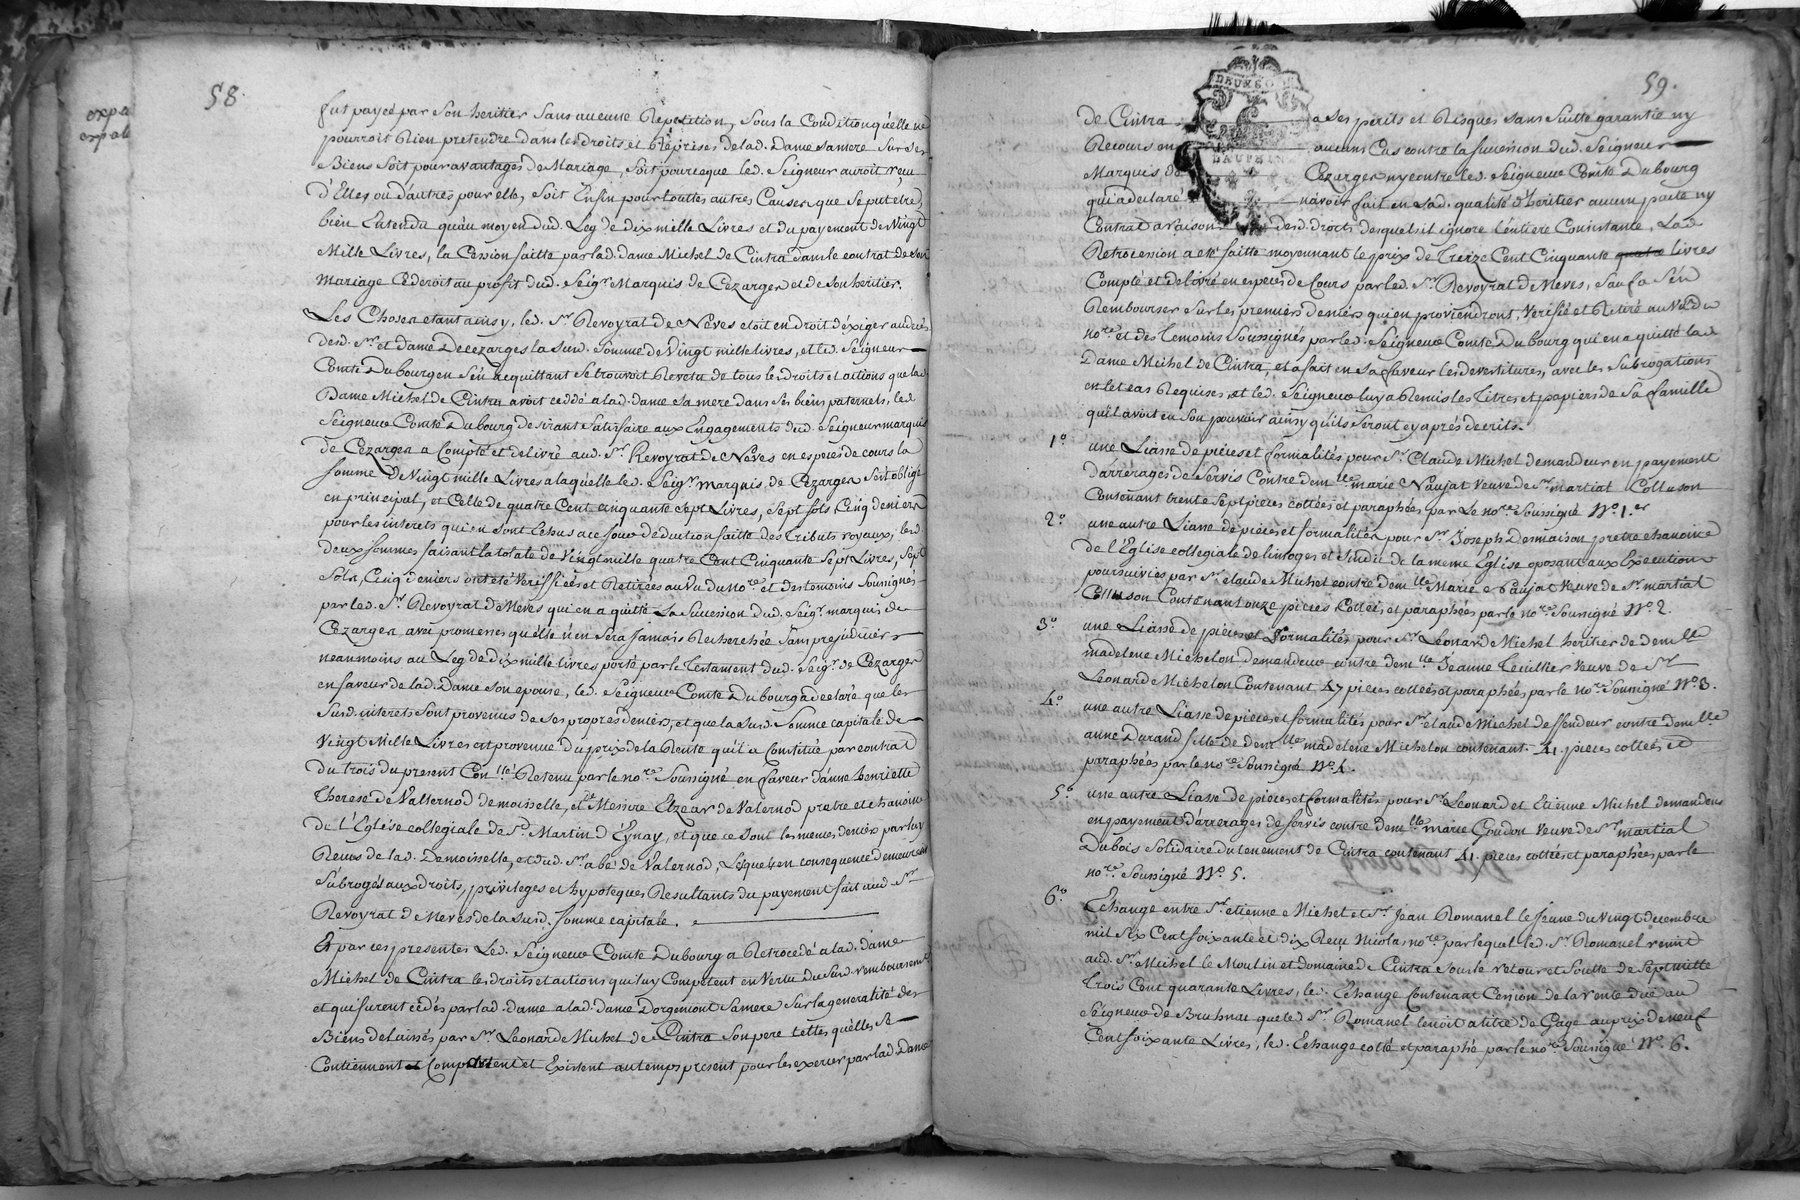 58
expa
expab
fut payéé par Son heritier Sans aucune Repetition, Sous la Condition qu'elle ne
pourroit Rien pretendre dans les droits et Reprises de lad. Dame Samere Sur Ses
Biens Soit pour avantages de Mariage, Soit pource que led. Seigneur auroit Reçu
d'Elles ou d'autres pour elle, Soit Enfin pour touttes autres Causes que se put etre,
bien Entendu qu'au moyen dud. Leg de dix mille Livres et du payement des Vingt
Mille Livres, la Cession faitte par lad. dame Michel de Cintra dans le contrat de Son
Mariage Cederoit au profit dud. Seigr. Marquis de Cezarges et de Son heritier.
Les Choses etant ainsy, led. Sr. Revoyrat de Neves etoit en droit d'éxiger au decés
desd. Srs. et dame De Cezarges la Susd. Somme de Vingt mille livres, et led. Seigneur
Comte Dubourg en S'en acquittant Se trouvoit Revetu de tous les droits et actions que lad.
Dame Michel de Cintra avoit ceddé a lad. dame Sa mere dans Ses biens paternels, led
Seigneur Comte Dubourg desirant Satisfaire aux Engagements dud. Seigneur marquis
de Cezarges a Compté et delivré aud. Sr. Revoyrat de Neves en especes de cours la
Somme de Vingt mille Livres a laquelle led. Seigr. marquis de Cezarges S'est obligé
en principal, et Celle de quatre Cent cinquante Sept Livres, Sept Sols Cinq deniers
pour les interets qui en Sont Echus a ce jour deduction faitte des tributs royaux, lesd.
deux Sommes faisant la totale de Vingt mille quatre Cent Cinquante Sept Livres, Sept
Sols, Cinq deniers ont été Veriffiéés et Retirées au Vu du nore. et des temoins Soussignés
par led. Sr. Revoyrat de Neves qui en a quitté la Succession dud. Seigr. marquis de
Cezarges avec promesses qu'elle n'en Sera jamais Recherchée Sans prejudicier
neanmoins au Leg de dix mille livres porté par le Testament dud. Seigr. de Cezarges
en faveur de lad. Dame Son epouse, led. Seigneur Comte Dubourg a declaré que les
Susd. interets Sont provenus de Ses propres deniers, et que la Susd. Somme capitale de
Vingt Mille Livres est provenue du prix de la Rente qu'il a Constitué par contrat
du trois du present Conllé. Retenu par le nore. Soussigné en faveur d'anne henriette
Therese de Vallernod demoiselle, et de Messire Elzear de Valernod pretre et chanoine
de l'Eglise collegiale de St. Martin d'Eynay, et que ce Sont les memes deniers par luy
Reçus de lad. Demoiselle, et dud. Sr. abbé de Valernod, Lesquels en consequence demeurent
Subrogés aux droits, privileges et hypoteques Resultants du payement fait aud. Sr.
Revoyrat de Neves de la Susd. Somme capitale.
Et par ces presentes Led. Seigneur Comte Dubourg a Retrocedé a lad. dame
Michel de Cintra les droits et actions qui luy Competent en Vertu du Susd. remboursement
et qui furent cedés par lad. dame a lad. dame Dorgemont Samere Sur la generalité des
Biens delaissés par Sr. Leonard Michel de Cintra Son pere telles qu'elles Se
Contiennent et Comportent et Existent au temps present pour les exercer par lad. Dame
59.
DAUPHINÉ
de Cintra a Ses perils et Risques Sans Suitte garantie ny
Recours en aucun Cas contre la Succession dud. Seigneur
Marquis de Cezarges ny contre led. Seigneur Comte Dubourg
qui a declaré n'avoir fait en Sad. qualité d'heritier aucun pacte ny
Contrat a raison desd. droits desquels il ignore l'entiere Consistance, Lad.
Retrocession a eté faitte moyennant le prix de Treize Cent Cinquante quatre livres
Compté et delivré en especes de Cours par led. Sr. Revoyrat de Neves, Sauf a S'en
Rembourser Sur les premiers deniers qui en proviendront, Verifié et Retiré au Vu du
nore. et des Temoins Soussignés par led. Seigneur Comte Dubourg qui en a quitté lad.
Dame Michel de Cintra, et a fait en Sa faveur les devestitures, avec les Subrogations
en tel cas Requises et led. Seigneur luy a Remis les Titres et papiers de Sa famille
qu'il avoit en Son pouvoir ainsy qu'ils Seront cy apres decrits.
1.° une Liasse de pieces et formalités pour Sr. Claude Michel demandeur en payement
d'arrerages de Servis Contre demlle. marie Naujat Veuve de Sr. martial Colluson
Contenant trente Sept pieces cottéés et paraphéés par Le nore. Soussigné N.° 1.er
2.° une autre Liasse de pieces et formalités pour Sr. Joseph Demaison pretre chanoine
de l'Eglise collegiale de limoges et Sindic de la meme Eglise oposant aux Execution
poursuivies par Sr. claude Michel contre demlle. Marie Naujat Veuve de Sr. martial
Colluson Contenant onze pieces Cottéés et paraphéés par le nore. Soussigné N.° 2.
3.° une Liasse de pieces et formalités pour Sr. Leonard Michel heritier de demlle
madelene Michelon demandeur contre demlle. Jeanne Teuillier Veuve de Sr.
Leonard Michelon Contenant 47 pieces cottéés et paraphéés par le nore. Soussigné N.° 3.
4.° une autre Liasse de pieces et formalités pour Sr. claude Michel deffendeur contre demlle
anne Durand fille de demlle. madelene Michelon contenant 41. pieces cottéés et
paraphéés par le nore. Soussigné N.° 4.
5.° une autre Liasse de pieces et formalités pour Sr. Leonard et Etienne Michel demandeurs
en payement d'arrerages de Servis contre demlle. marie Goudon Veuve de Sr. martial
Dubois Solidaire du tenement de Cintra contenant 41. pieces cottéés et paraphéés par le
nore. Soussigné N.° 5.
6.° Echange entre Sr. etienne Michel et Sr. Jean Romanel le Jeune du Vingt decembre
mil Six Cent Soixante et dix Reçu Nicolas nore. par lequel led. Sr. Romanel remit
aud. Sr. Michel le Moulin et domaine de Cintra Sous le retour et Soulte de Sept mille
Trois Cent quarante Livres, led. Echange Contenant Cession de la rente due au
Seigneur de Brushac que led. Sr. Romanel tenoit a titre de Gage au prix de neuf
Cent Soixante Livres, led. Echange cotté et paraphé par le nore. Soussigné N.° 6.